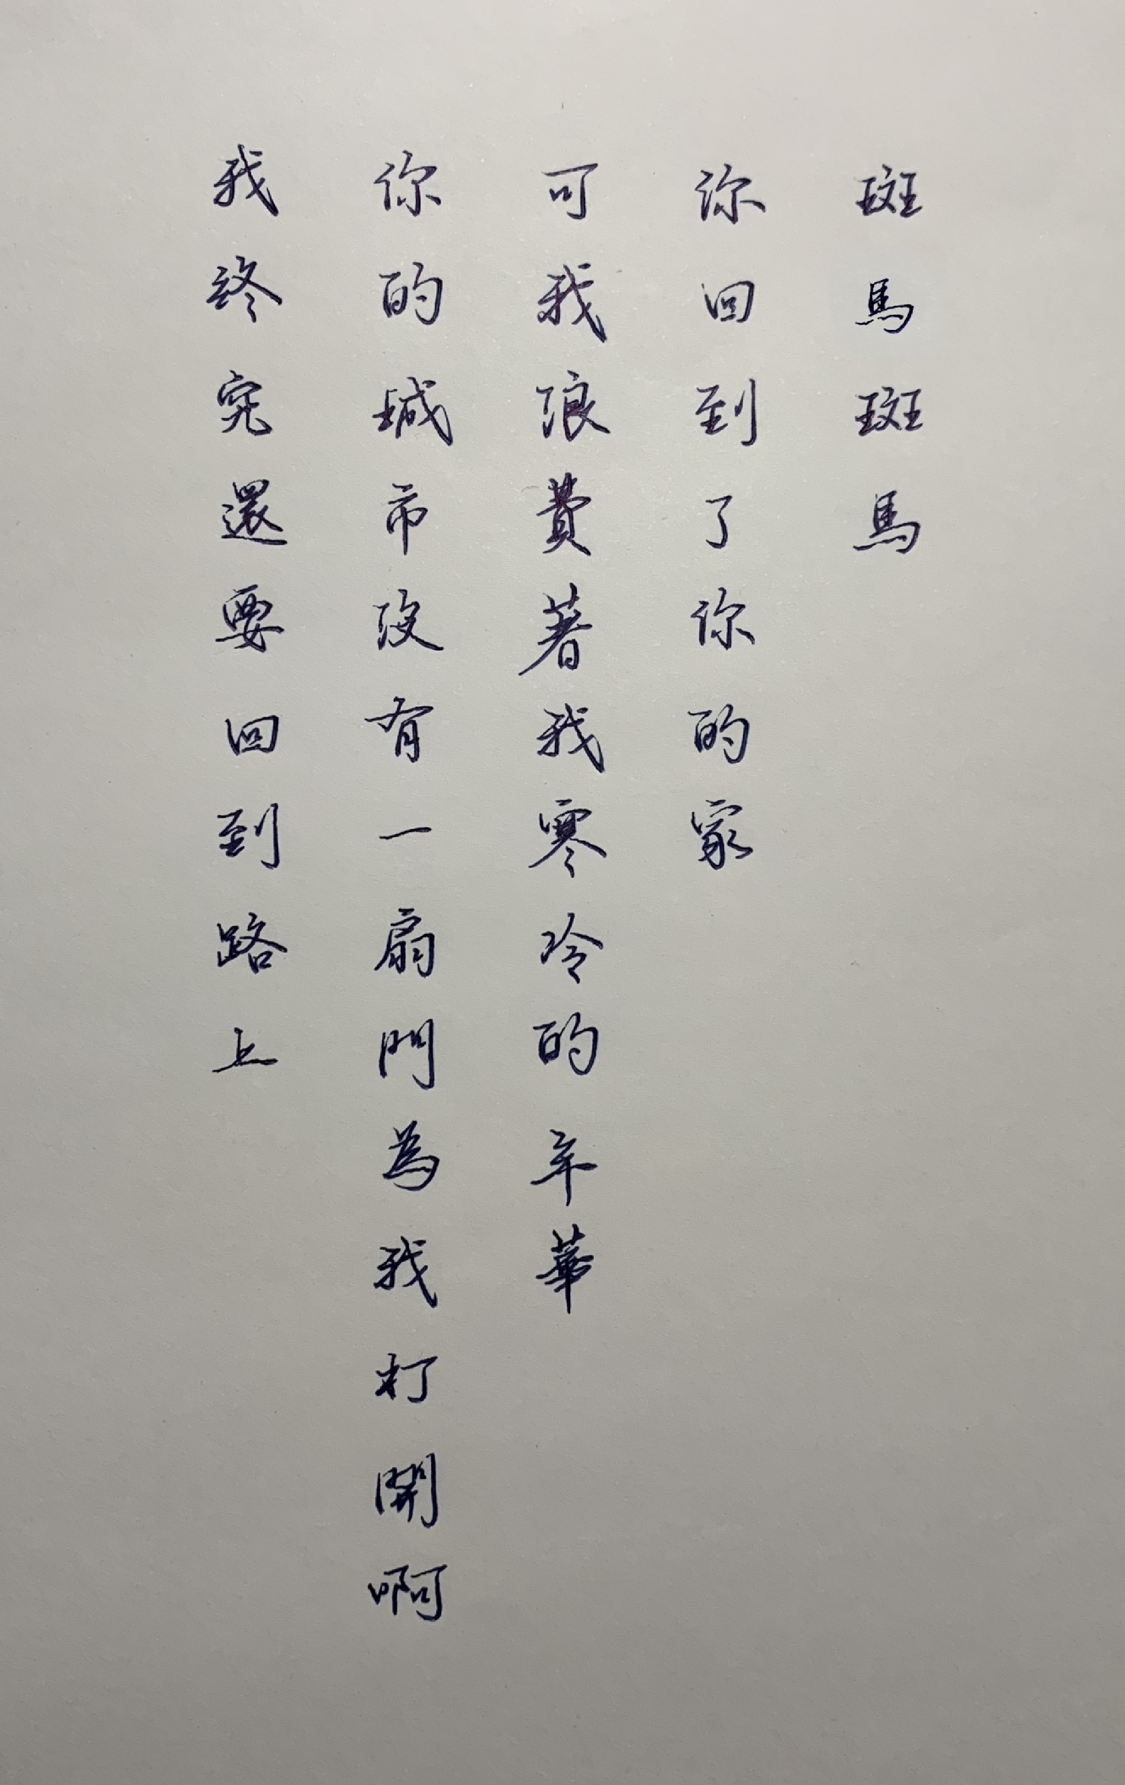 斑馬斑馬
你回到了你的家
可我浪費著我寒冷的年華
你的城市沒有一扇門為我打開啊
我終究還要回到路上